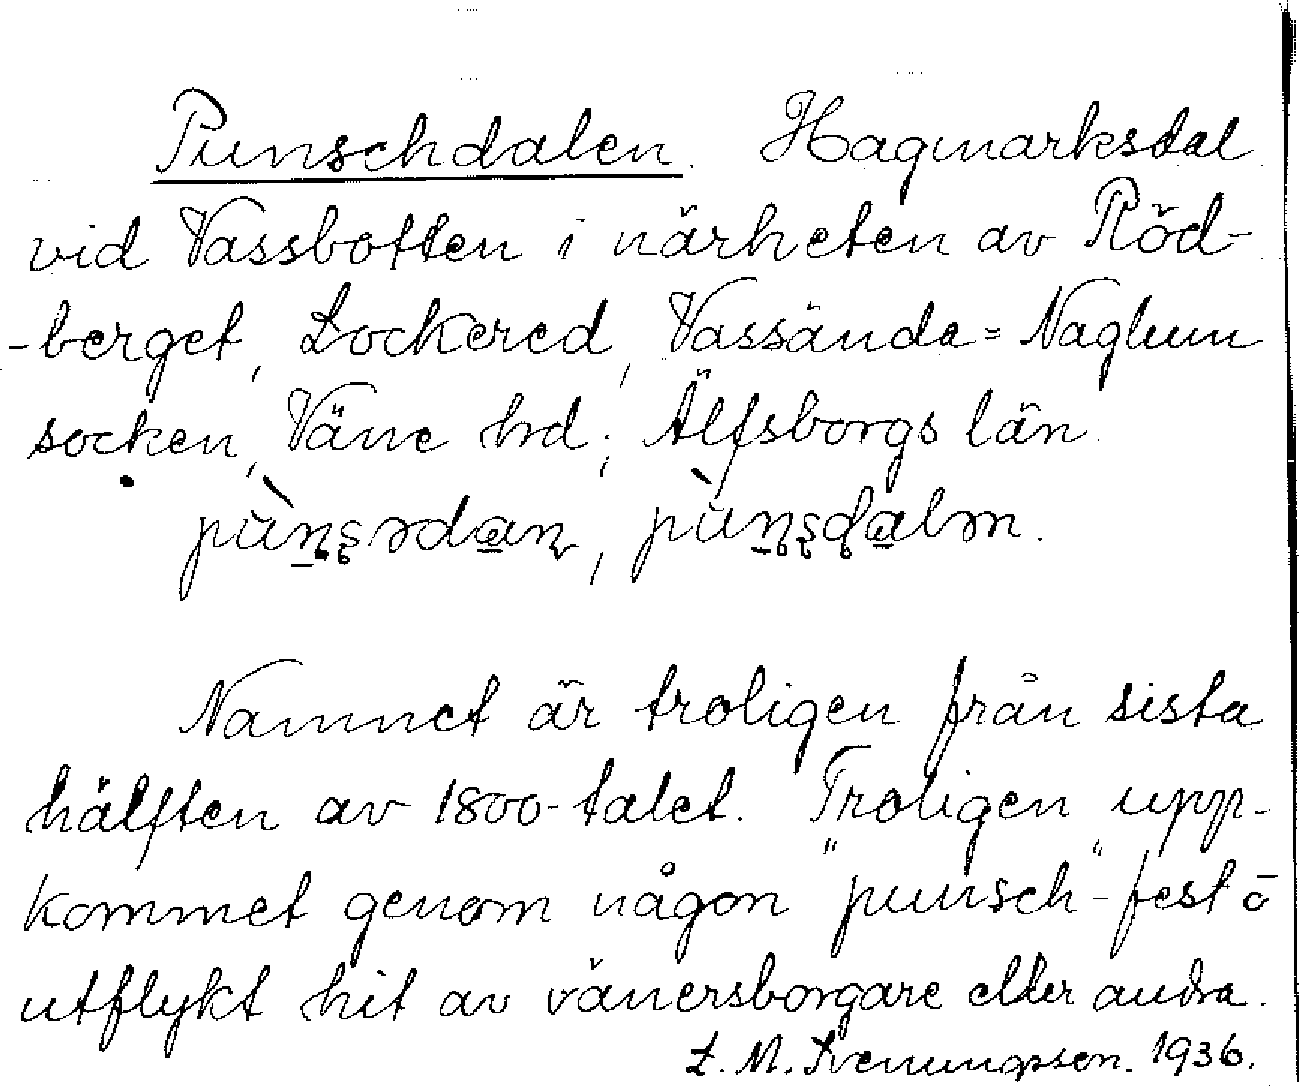 Punschdalen. Hagmarksdal
vid Vassbotten i närheten av Röd-
-berget, Lockered, Vassända=Naglum
socken, Väne hrd; Älfsborgs län.
Namnet är troligen från sista
hälften av 1800-talet. Troligen upp-
kommet genom någon "punsch"-fest o
utflykt hit av vänersborgare eller andra.
L. M. Svenungsson. 1936.